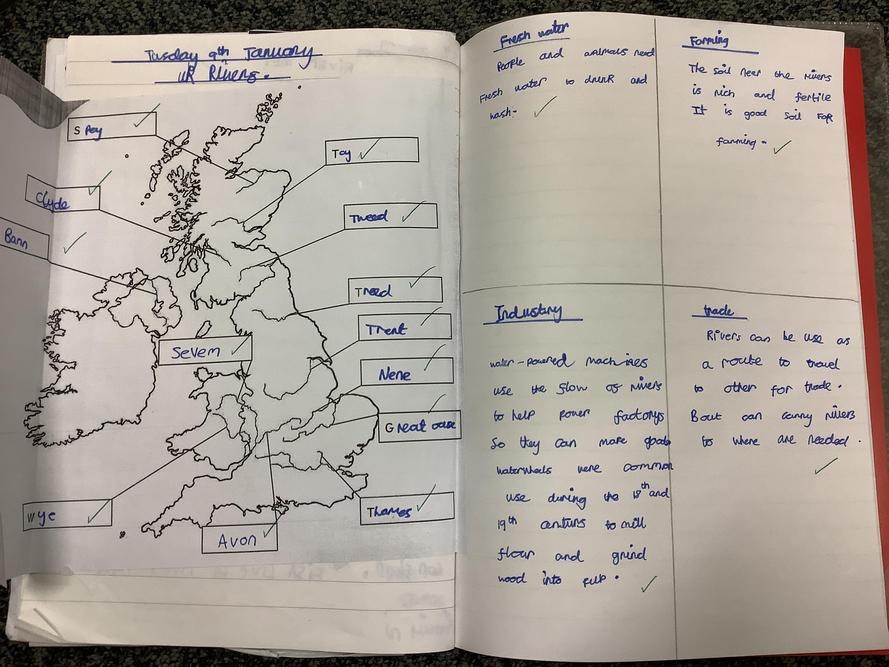 Tuesday 9th January
UK Rivers.
Spey
Tay
Clyde
Tweed
Bann
Treed
Trent
Severn
Nene
Great ouse
Wye
Avon
Thames
Fresh water
People and animals need
Fresh water to drink and
wash.
Farming
The soil near the rivers
is rich and fertile
It is good soil for
farming.
Industry
water-powered machines
use the flow of rivers
to help power factorys
So they can make goods
waterwheels were common
use during the 18th and
19th centurs to mill
flour and grind
wood into pulp.
trade
Rivers can be use as
a route to travel
to other for trade.
Bout can carry rivers
to where are needed.